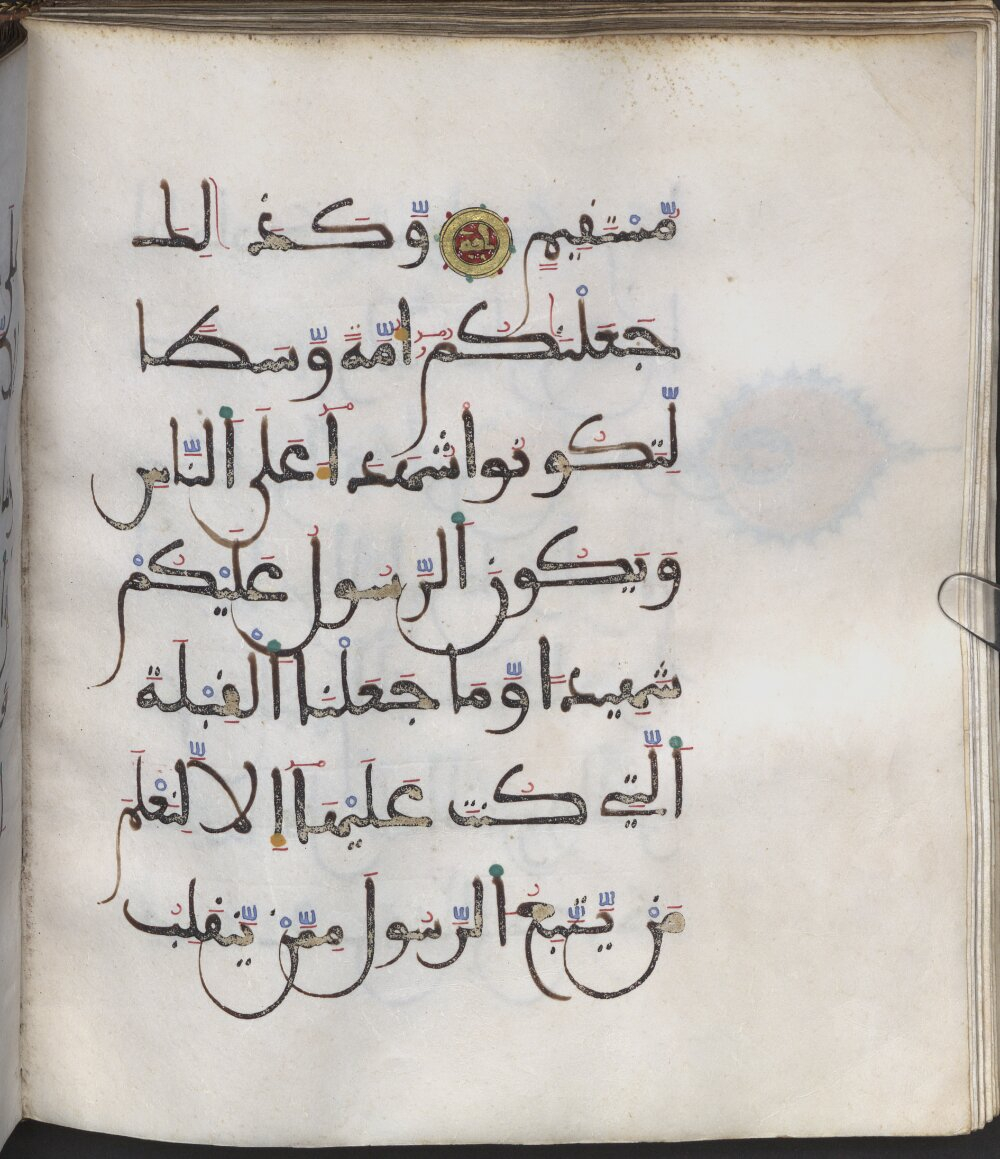 مُّسْتَقِيمٍ وَّكَذَٰلِكَ
جَعَلْنَٰكُمُۥٓ أُمَّةً وَّسَطًا
لِّتَكُونُوا۟ شُهَدَآءَ عَلَى ٱلنَّاسِ
وَيَكُونَ ٱلرَّسُولُ عَلَيْكُمْ
شَهِيدًا وَّمَا جَعَلْنَا ٱلْقِبْلَةَ
ٱلَّتِي كُنتَ عَلَيْهَآ إِلَّا لِنَعْلَمَ
مَنْ يَّتَّبِعُ ٱلرَّسُولَ مِمَّنْ يَّنقَلِبُ